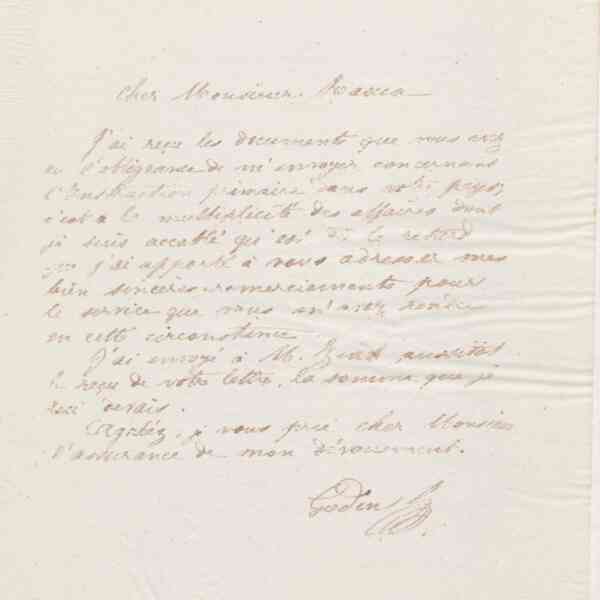 Cher Monsieur
J'ai reçu les documents que vous avez
eu l'obligeance de m'envoyer concernant
l'Instruction primaire dans votre pays;
c'est à la multiplicité des affaires dont
je suis accablé qu'est dû le retard
que j'ai apporté à vous adresser mes
bien sincères remerciements pour
le service que vous m'avez rendu
en cette circonstance.
J'ai envoyé à M. aussitôt
le reçu de votre lettre, la somme que je
lui devais.
Agréez, je vous prie cher Monsieur
l'assurance de mon dévouement.
Godin